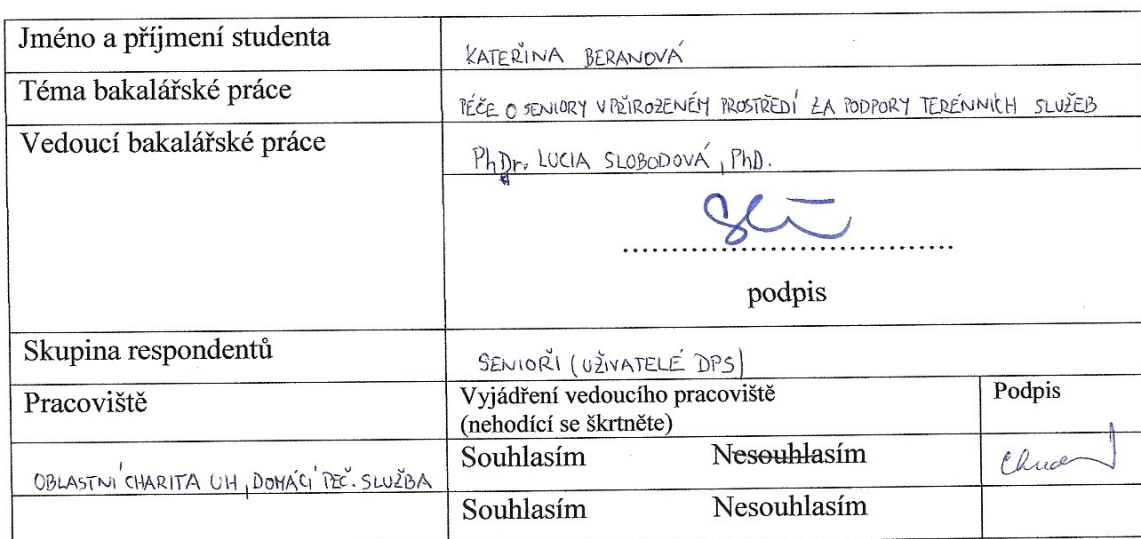 Jméno a příjmení studenta
KATEŘINA BERANOVÁ
Téma bakalářské práce
PÉČE O SENIORY V PŘIROZENÉM PROSTŘEDÍ ZA PODPORY TERÉNNÍCH SLUŽEB
Vedoucí bakalářské práce
PhDr. LUCIA SLOBODOVÁ, PhD.
podpis
Skupina respondentů
SENIOŘI (UŽIVATELÉ DPS)
Pracoviště
Vyjádření vedoucího pracoviště
(nehodící se škrtněte)
Podpis
OBLASTNÍ CHARITA UH, DOMÁCÍ PEČ. SLUŽBA
Souhlasím Nesouhlasím
Souhlasím Nesouhlasím